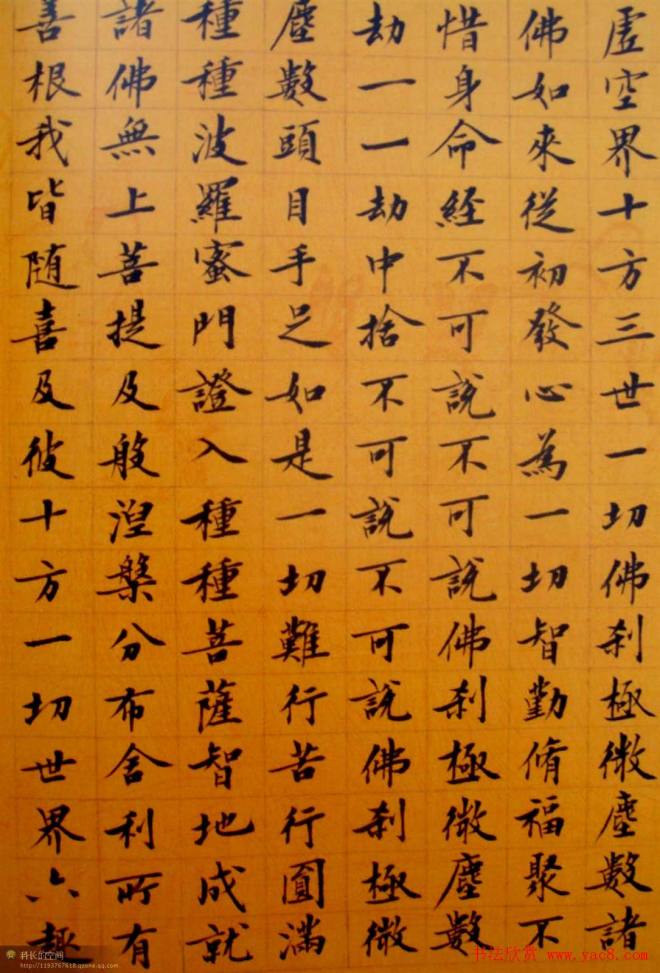 虛空界十方三世一切佛刹極微塵數諸
佛如來從初發心為一切智勤脩福聚不
惜身命經不可說不可說佛刹極微塵數
劫一一劫中捨不可說不可說佛刹極微
塵數頭目手足如是一切難行苦行圓滿
種種波羅蜜門證入種種菩薩智地成就
諸佛無上菩提及般涅槃分布舍利所有
善根我皆随喜及彼十方一切世界六趣
科长的空间
http://1193767618.qzone.qq.com
书法欣赏 www.yac8.com